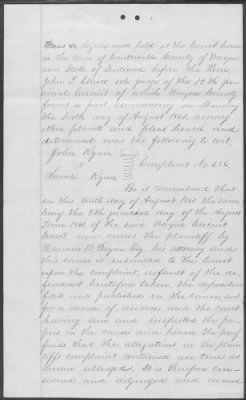 Pleas &c begun and held at the Court house
in the town of Centreville County of Wayne
and State of Indiana before the Hon.
John T. Elliott sole judge of the
judicial Circuit of which Wayne County
forms a part commencing on Monday
the Sixth day of August 1860, among
other plaints and pleas heard and
determined was the following to wit,
John Ryan
vs Complaint No 656.
Sarah Ryan
Be it remembered that
on this tenth day of August 1860 the same
being the 5th juridical day of the August
Term 1860, of the said Wayne Circuit
Court now comes the plaintiff by
Esq. his attorney and
this cause is submitted to the Court
upon the complaint, default of the de-
fendant heretofore taken, the deposition
filed and published in the cause and
for a decree of divorce and the court
having seen and inspected the pa-
pers in the cause and heard the proof
finds that the allegations in the plain-
tiffs complaint contained are true as
therein alleged. It is therefore con-
sidered and adjudged and decreed